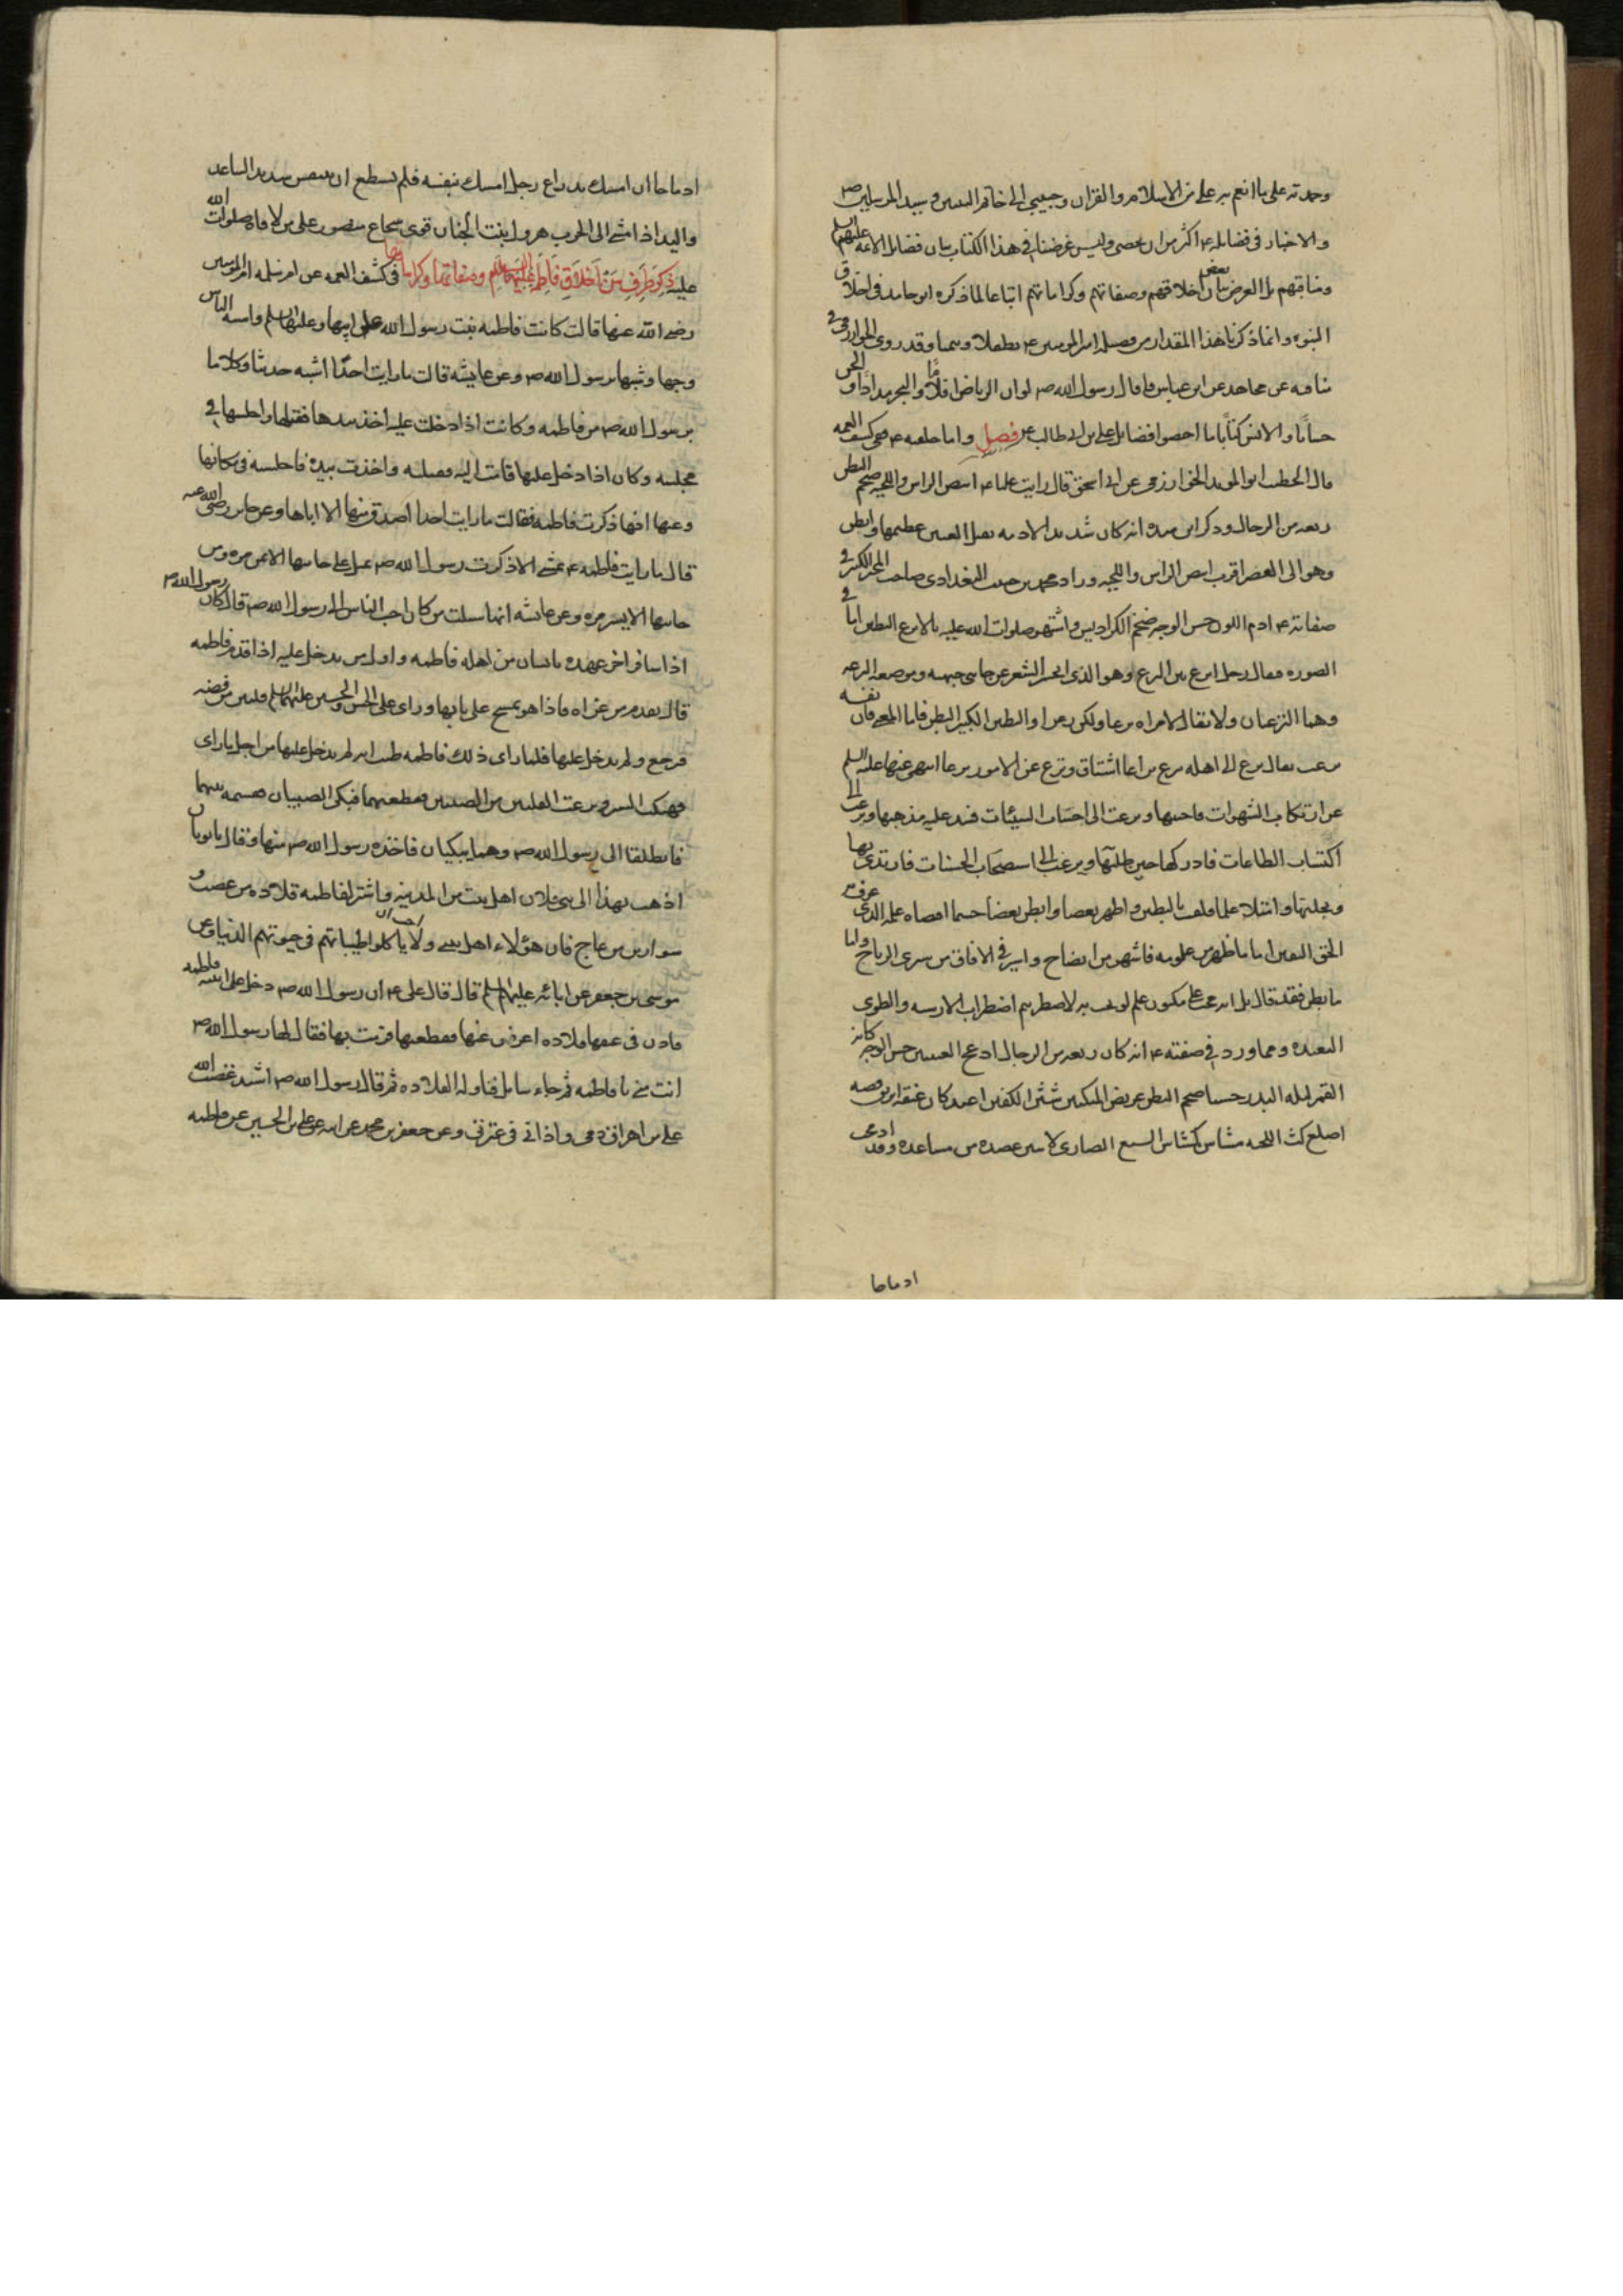 وحمدته على ما انعم به على من الاسلام والقران وحببنى الى خاتم النبيين وسيد المرسلين ص
والاخبار فى فضايله ع اكثر من ان تحصى وليس غرضنا فى هذا الكتاب بيان فضايل الائمه عليهم السلم
ومناقبهم بل الغرض بيان بعض اخلاقهم وصفاتهم وكراماتهم اتباعا لما ذكره ابو حامد فى اخلاق
النبوه وانما ذكرنا هذا المقدار من فضيله امير المومنين ع تطفلا وتيمنا وقد روى الخوارزمى فى
مناقبه عن مجاهد عن ابن عباس قال قال رسول الله ص لو ان الرياض اقلامًا والبحر مدادًا والجن
حسابًا والانس كتابًا ما احصوا فضايل على بن ابى طالب ع فصل واما خلقه ع ففى كشف الغمه
قال الخطيب ابو المويد الخوارزمى عن ابى اسحق قال رايت عليا ع ابيض الراس واللحيه ضخم البطن
ربعه من الرجال وذكر ابن منده انه كان شديد الادمه ثقيل العينين عظيمهما ذا بطن
وهو الى القصر اقرب ابيض الراس واللحيه وزاد محمد بن حبيب البغدادى صاحب المحبر الكبير فى
صفاته ع ادم اللون حسن الوجه ضخم الكراديس واشتهر صلوات الله عليه بالانزع البطين اما فى
الصوره فقال رجل انزع بين النزع وهو الذى انحسر الشعر عن جانبى جبهته وموضعه النزعه
وهما النزعتان ولا يقال لامراه نزعا ولكن زعرا والبطين الكبير البطن فاما المعنى فان نفسه
نزعت يقال نزع الى اهله ينزع نزاعا اشتاق ونزع عن الامور نزوعا انتهى عنها عليه السلم
عن ارتكاب الشهوات فاجتنبها ونزعت الى اجتناب السيئات فسد عليه مذهبها ونزعت الى
اكتساب الطاعات فادركها حين طلبها ونزعت الى استصحاب الحسنات فارتدى بها
وتجلببها وامتلا علما فلقب بالبطين واظهر بعضا وابطن بعضا حسبما اقتضاه علمه الذى عرف به
الحق اليقين اما ما ظهر من علومه فاشهر من الصباح واسير فى الافاق من سرى الرياح واما
ما بطن فقد قال بل اندمجت على مكنون علم لو بحت به لاضطربتم اضطراب الارشيه فى الطوى
البعيده ومما ورد فى صفته ع انه كان ربعه من الرجال ادعج العينين حسن الوجه كانه
القمر ليله البدر حسنا ضخم البطن عريض المنكبين شثن الكفين اغيد كان عنقه ابريق فضه
اصلع كث اللحيه لمنكبه مشاش كمشاش السبع الضارى لا يبين عضده من ساعده وقد ادمجت
ادماجا
ادماجا ان امسك بذراع رجل امسك بنفسه فلم يستطع ان يتنفس شديد الساعد
واليد اذا مشى الى الحرب هرول ثبت الجنان قوى شجاع منصور على من لاقاه صلوات الله
عليه ذكر طرف من اخلاق فاطمه عليها السلم وصفاتها وكراماتها فى كشف الغمه عن ام سلمه ام المومنين
رضى الله عنها قالت كانت فاطمه بنت رسول الله صلى على ابيها وعليها السلم اشبه الناس
وجها وشبها برسول الله ص وعن عايشه قالت ما رايت احدًا اشبه حديثا وكلاما
برسول الله ص من فاطمه وكانت اذا دخلت عليه اخذ بيدها فقبلها واجلسها فى
مجلسه وكان اذا دخل عليها قامت اليه فقبلته واخذت بيده فاجلسته فى مكانها
وعنها انها ذكرت فاطمه فقالت ما رايت احدا اصدق منها الا اباها وعن جابر رضى الله عنه
قال ما رايت فاطمه ع تمشى الا ذكرت رسول الله ص تميل على جانبها الايمن مره وعن
جانبها الايسر مره وعن عايشه انها سئلت من كان احب الناس الى رسول الله ص قال كان رسول الله ص
اذا سافر اخر عهده بانسان من اهله فاطمه واول من يدخل عليه اذا قدم فاطمه
قال فقدم من غزاه فاذا هو بمسح على بابها وراى على الحسن والحسين عليهما السلم قلبين من فضه
فرجع ولم يدخل عليها فلما راى ذلك فاطمه ظنت انه لم يدخل عليها من اجل ما راى
فهتكت الستر ونزعت القلبين من الصبيين فقطعتهما فبكى الصبيان فقسمته بينهما
فانطلقا الى رسول الله ص وهما يبكيان فاخذه رسول الله ص منهما وقال يا ثوبان
اذهب بهذا الى بنى فلان اهل بيت من المدينه واشتر لفاطمه قلاده من عصب و
سوارين من عاج فان هؤلاء اهل بيتى ولا احب ان ياكلوا طيباتهم فى حيوتهم الدنيا وعن
موسى بن جعفر عن ابائه عليهم السلم قال قال على ع ان رسول الله ص دخل على ابنته فاطمه
فاذن فى عنقها قلاده اعرض عنها فقطعتها فرمت بها فقال لها رسول الله ص
انت منى يا فاطمه ثم جاء سايل فناولته القلاده ثم قال رسول الله ص اشتد غضب الله
على من اهراق دمى واذانى فى عترتى وعن جعفر بن محمد عن ابيه عن على بن الحسين عن فاطمه